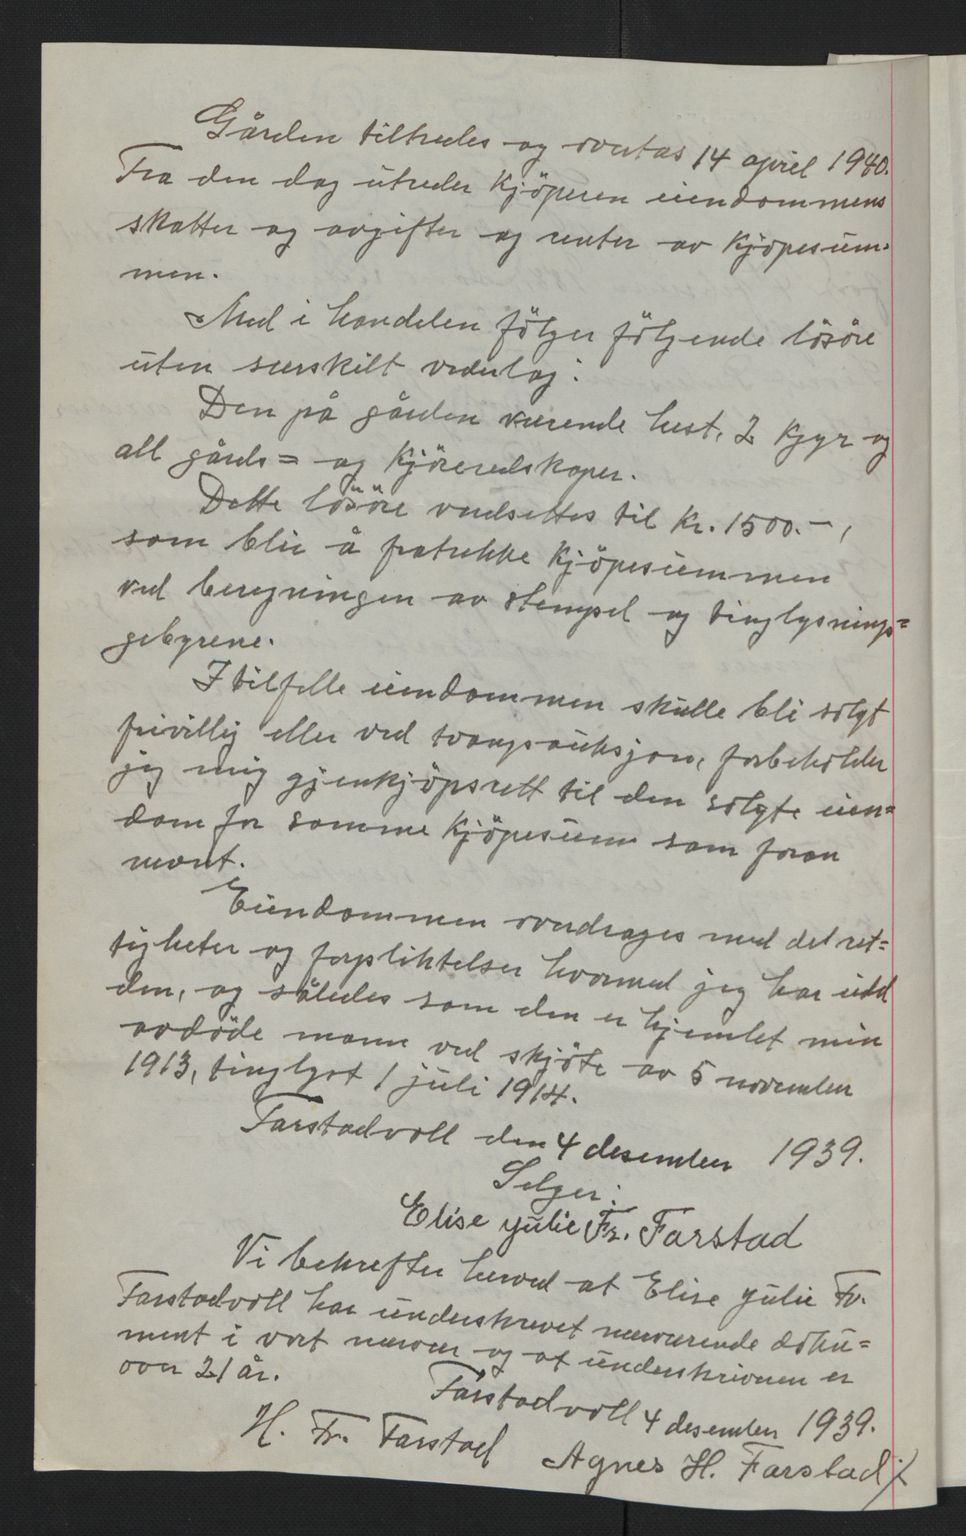 Gården tiltredes og overtas 14 april 1940.
Fra den dag utreder kjöperen eiendommens
skatter og avgifter og renter av kjöpesum-
men.
Med i handelen fölger fölgende lösöre
uten særskilt vederlag:
Den på gården værende hest, 2 kjyr og
all gårds= og kjöreredskaper.
Dette lösöre verdsettes til kr. 1500.-,
som blir å fratrekke kjöpesummen
ved beregningen av stempel og tinglysnings=
gebyrene.
I tilfelle eiendommen skulle bli solgt
frivillig eller ved tvangsauksjon, forbeholder
jeg mig gjenkjöpsrett til den solgte eien=
dom for samme kjöpesum som foran
nævnt.
Eiendommen overdrages med det ret=
tigheter og forpliktelser hvormed jeg har eid
den, og således som den er hjemlet min
avdöde mann ved skjöte av 5 november
1913, tinglyst 1 juli 1914.
Farstadvoll den 4 desember 1939.
Selger:
Elise Julie Fr. Farstad
Vi bekrefter herved at Elise Julie Fr.
Farstadvoll har underskrevet nærværende doku=
ment i vort nærvær og at underskriveren er
over 21 år.
Farstadvoll 4 desember 1939.
H. Fr. Farstad Agnes H. Farstad